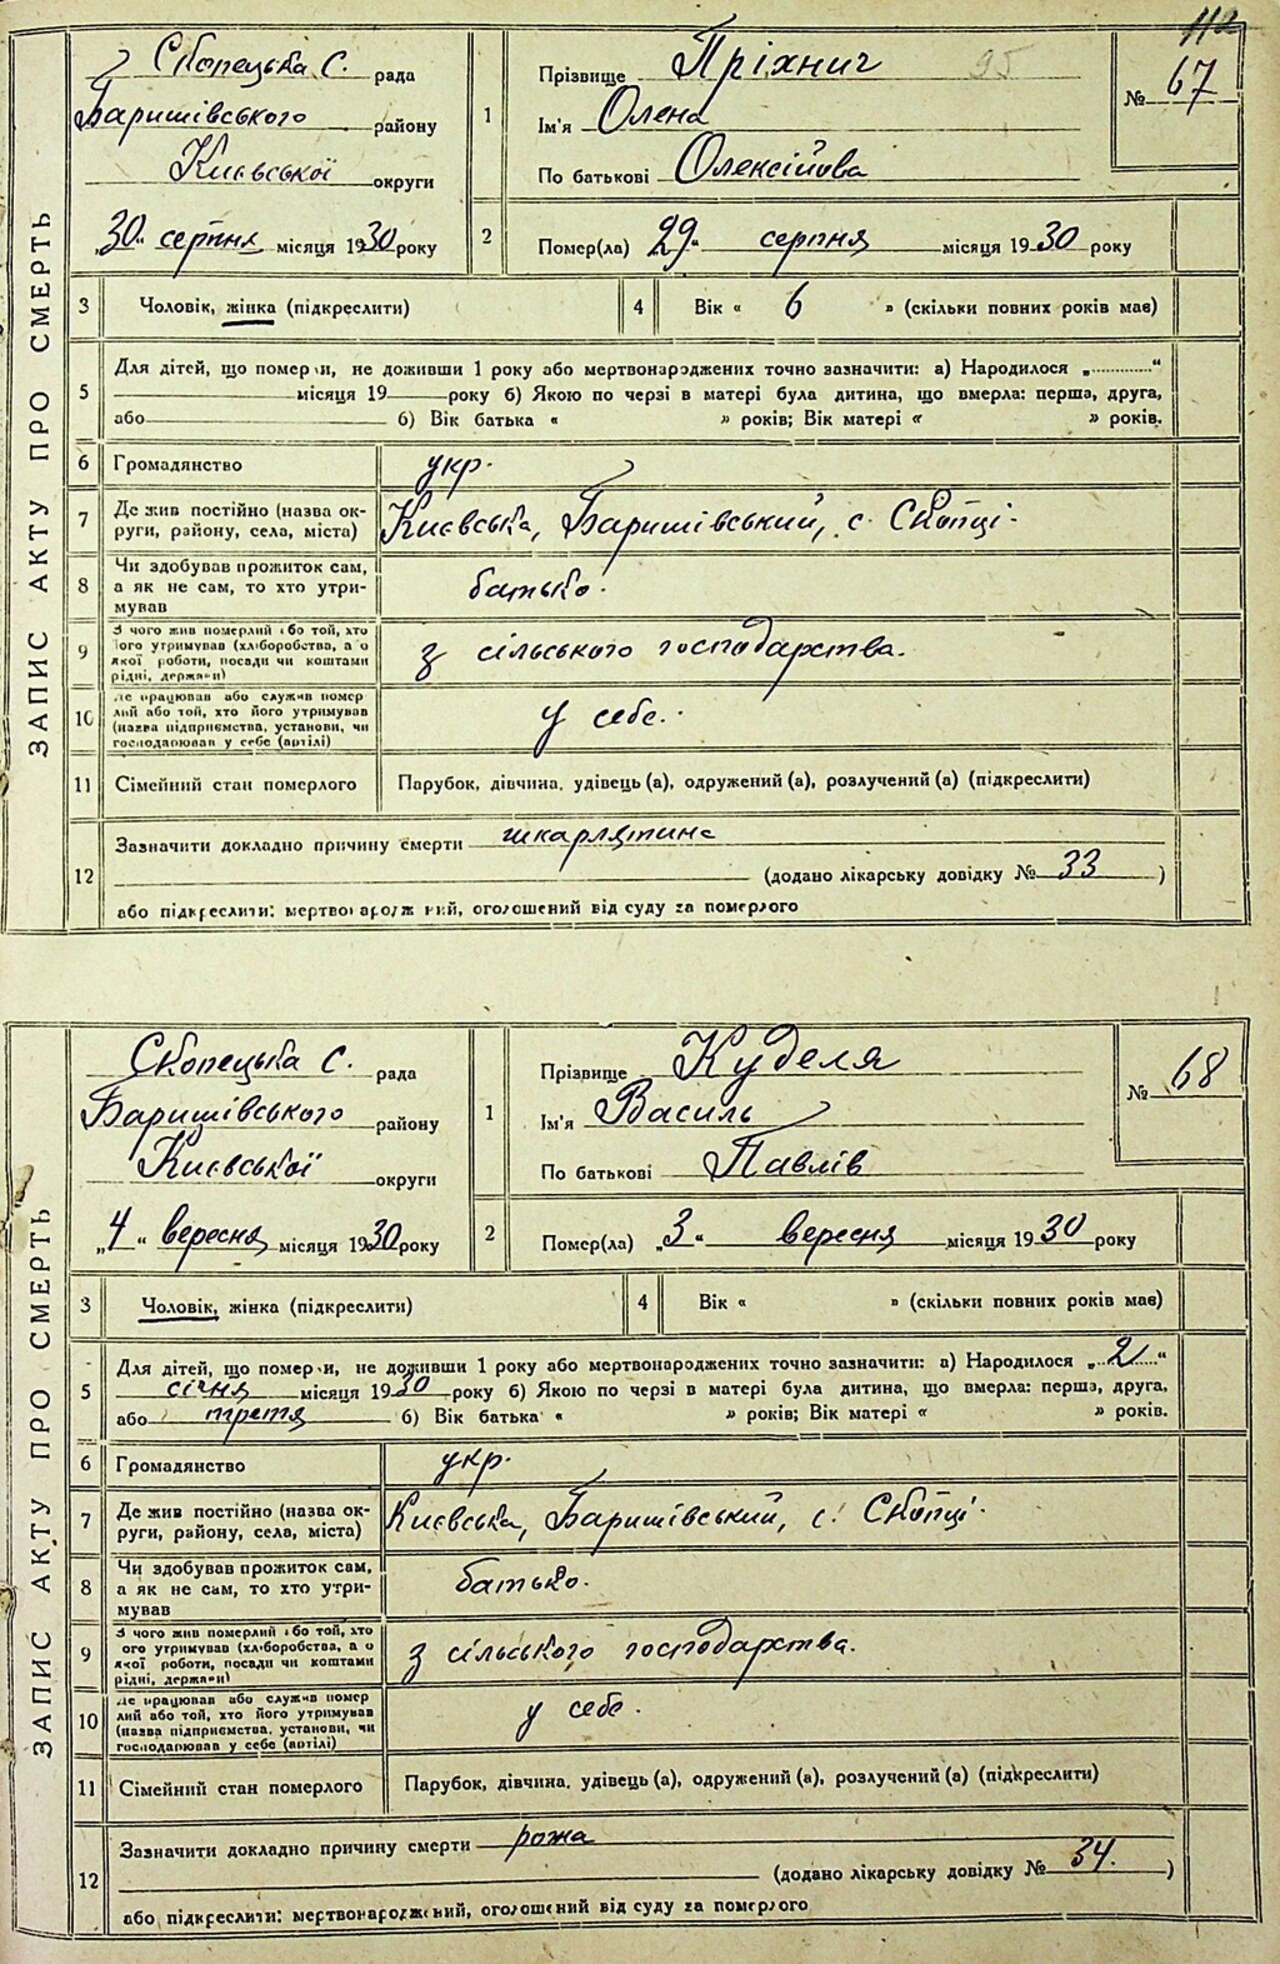 112
ЗАПИС АКТУ ПРО СМЕРТЬ
Скопецька С. рада
Баришівського району
Києвської округи
„30“ серпня місяця 1930 року
1
Прізвище Пріхнич 95
Ім'я Олена
По батькові Олексійова
№ 67
2 Помер(ла) 29“ серпня місяця 1930 року
3 Чоловік, жінка (підкреслити)
4 Вік « 6 » (скільки повних років має)
5 Для дітей, що померли, не доживши 1 року або мертвонароджених точно зазначити: а) Народилося „ “
місяця 19 року б) Якою по черзі в матері була дитина, що вмерла: перша, друга,
або б) Вік батька « » років; Вік матері « » років.
6 Громадянство укр.
7 Де жив постійно (назва ок-
руги, району, села, міста) Києвська, Баришівський, с. Скопці.
8 Чи здобував прожиток сам,
а як не сам, то хто утри-
мував батько.
9 З чого жив померлий або той, хто
його утримував (хліборобства, а о
якої роботи, посади чи коштами
рідні, держави) з сільського господарства.
10 Де працював або служив помер
лий або той, хто його утримував
(назва підприємства, установи, чи
господарював у себе (артілі) у себе.
11 Сімейний стан померлого Парубок, дівчина, удівець (а), одружений (а), розлучений (а) (підкреслити)
12 Зазначити докладно причину смерти шкарлятина
(додано лікарську довідку № 33 )
або підкреслити: мертвонароджений, оголошений від суду за померлого
ЗАПИС АКТУ ПРО СМЕРТЬ
Скопецька С. рада
Баришівського району
Києвської округи
„4“ вересня місяця 1930 року
1
Прізвище Куделя
Ім'я Василь
По батькові Павлів
№ 68
2 Помер(ла) „3“ вересня місяця 1930 року
3 Чоловік, жінка (підкреслити)
4 Вік « » (скільки повних років має)
5 Для дітей, що померли, не доживши 1 року або мертвонароджених точно зазначити: а) Народилося „2“
січня місяця 1930 року б) Якою по черзі в матері була дитина, що вмерла: перша, друга,
або третя б) Вік батька « » років; Вік матері « » років.
6 Громадянство укр.
7 Де жив постійно (назва ок-
руги, району, села, міста) Києвська, Баришівський, с. Скопці.
8 Чи здобував прожиток сам,
а як не сам, то хто утри-
мував батько.
9 З чого жив померлий або той, хто
ого утримував (хліборобства, а о
якої роботи, посади чи коштами
рідні, держави) з сільського господарства.
10 Де працював або служив помер
лий або той, хто його утримував
(назва підприємства, установи, чи
господарював у себе (артілі) у себе.
11 Сімейний стан померлого Парубок, дівчина, удівець (а), одружений (а), розлучений (а) (підкреслити)
12 Зазначити докладно причину смерти рожа
(додано лікарську довідку № 34. )
або підкреслити: мертвонароджений, оголошений від суду за померлого